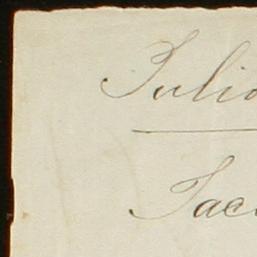 Julio
Jac